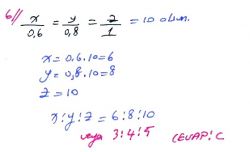 6// x/0,6 = y/0,8 = z/1 = 10 olsun.
x = 0,6.10 = 6
y = 0,8.10 = 8
z = 10
x:y:z = 6:8:10
veya 3:4:5 CEVAP: C